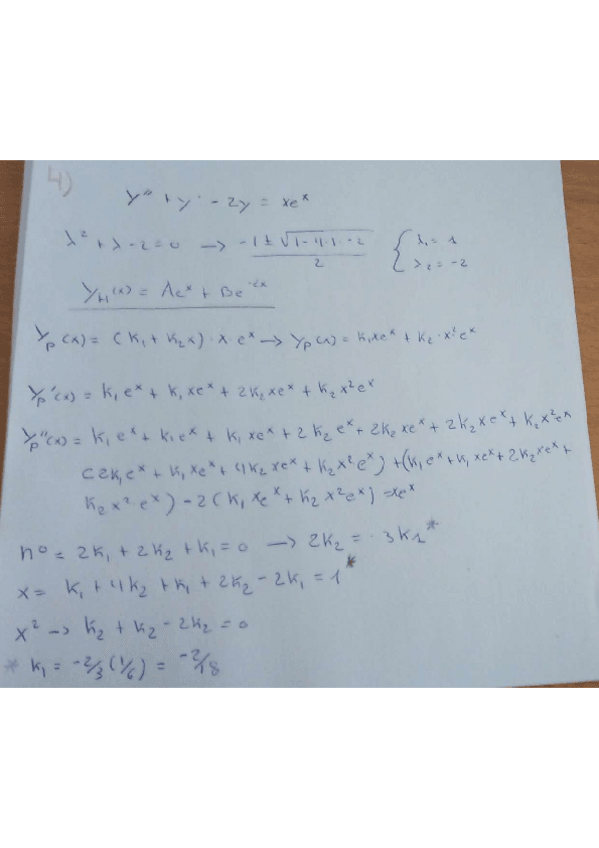 4)
y'' + y' - 2y = xe^x
λ² + λ - 2 = 0 → -1 ± √(1 - 4·1·-2) / 2 { λ₁ = 1 λ₂ = -2
y_H(x) = Ae^x + Be^-2x
y_p(x) = (K₁ + K₂x)·x·e^x → y_p(x) = K₁xe^x + K₂·x²e^x
y_p'(x) = K₁e^x + K₁xe^x + 2K₂xe^x + K₂x²e^x
y_p''(x) = K₁e^x + K₁e^x + K₁xe^x + 2K₂e^x + 2K₂xe^x + 2K₂xe^x + K₂x²e^x
(2K₁e^x + K₁xe^x + 4K₂xe^x + K₂x²e^x) + (K₁e^x + K₁xe^x + 2K₂xe^x +
K₂x²·e^x) - 2(K₁xe^x + K₂x²e^x) = xe^x
nº = 2K₁ + 2K₂ + K₁ = 0 → 2K₂ = -3K₁*
x = K₁ + 4K₂ + K₁ + 2K₂ - 2K₁ = 1*
x² → K₂ + K₂ - 2K₂ = 0
* K₁ = -2/3(1/6) = -2/18